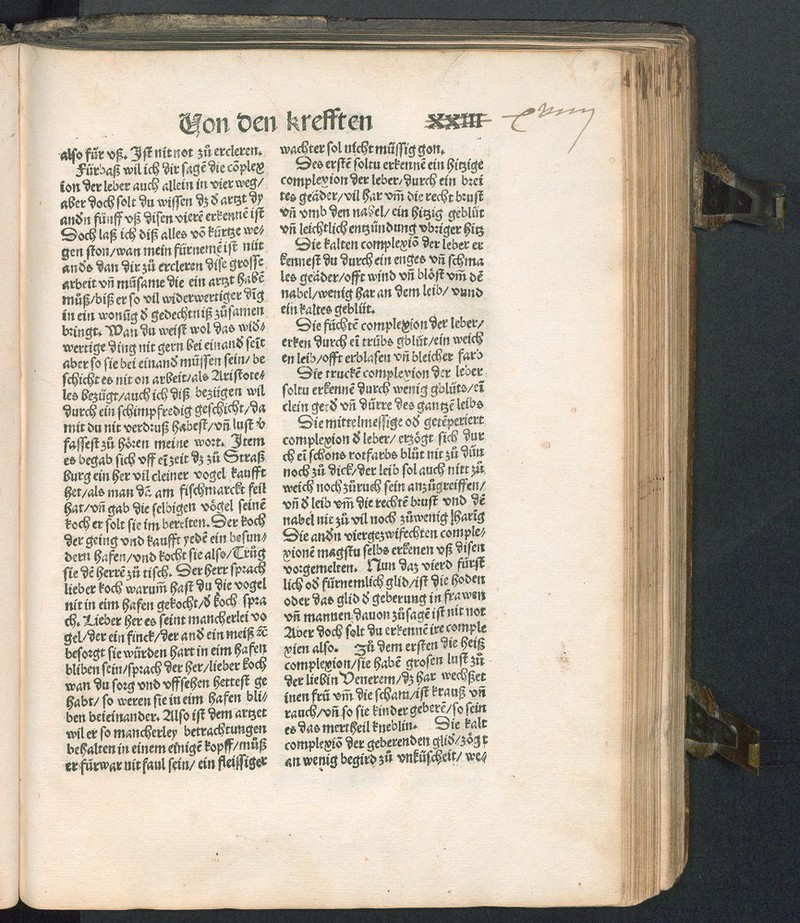 Von den krefften
XXIII
also für vß. Ist nit not zů ercleren.
Fürbaß wil ich dir sagē die cōplex
ion der leber auch allein in vier weg/
aber doch solt du wissen dz d̄ artzt dy
andn̄ fünff vß disen vierē erkennē ist
Doch laß ich diß alles võ kürtze we⸗
gen ston/wan mein fürnemē ist nüt
ands dan dir zů ercleren dise grosse
arbeit vñ müsame die ein artzt habē
můß/biß er so vil widerwertiger dīg
in ein wonūg d̄ gedechtniß zůsamen
bringt. Wan du weist wol das wid⸗
wertige ding nit gern bei einand seīt
aber so sie bei einand müssen sein/ be
schicht es nit on arbeit/als Aristote⸗
les bezügt/auch ich diß bezügen wil
durch ein schimpfredig geschicht/da
mit du nit verdruß habest/vñ lust v̄
fassest zů hören meine wort. Item
es begab sich vff eī zeit dz zů Straß
burg ein her vil cleiner vogel kaufft
het/als man dā am fischmarckt feil
hat/vñ gab die selbigen vögel seinē
koch er solt sie im bereiten. Der koch
der geing vnd kaufft yedē ein besun⸗
dern hafen/vnd kocht sie also/Trůg
sie dē herrē zů tisch. Der herr sprach
lieber koch warumb hast du die vogel
nit in eim hafen gekocht/d̄ koch spra
ch. Lieber her es seint mancherlei vo
gel/der ein finck/der and ein meiß ⁊c̄
besorgt sie würden hart in eim hafen
bliben sein/sprach der her/lieber koch
wan du sorg vnd vffsehen hettest ge
habt/so weren sie in eim hafen bli⸗
ben beieinander. Also ist dem artzet
wil er so mancherley betrachtungen
behalten in einem einigē kopff/můß
er fürwar nit faul sein/ ein fleissiger
wachter sol nicht müssig gon.
Des erstē soltu erkennē ein hitzige
complexion der leber/durch ein brei
tes geäder/vil har vm̄ die recht brust
vñ vmb den nabel/ein hitzig geblüt
vñ leichtlich entzündung vbriger hitz
Die kalten complexiō der leber er
kennest du durch ein enges vñ schma
les geäder/offt wind vñ blöst vm̄ dē
nabel/wenig har an dem leib/ vnnd
ein kaltes geblüt.
Die füchtē complexion der leber/
erken durch eī trübs gblüt/ein weich
en leib/offt erblasen vñ bleicher farb
Die truckē complexion der leber
soltu erkennē durch wenig gblüts/eī
clein ged̄ vñ dürre des gantzē leibs
Die mittelmessige od̄ getēperiert
complexion d̄ leber/ erzögt sich dur
ch eī schons rotfarbs blůt nit zů dün
noch zů dick/der leib sol auch nitt zů
weich noch zů ruch sein anzůgreiffen/
vñ d̄ leib vm̄ die rechtē brust vnd dē
nabel nit zů vil noch zůwenig harig
Die andn̄ viergezwifechten comple⸗
xionē magstu selbs erkenen vß disen
vorgemelten. Nun daz vierd fürst
lich od̄ fürnemlich glid/ist die hoden
oder das glid d̄ geberung in frawen
vñ mannen dauon zůsagē ist nit not
Aber doch solt du erkennē ire comple
xien also. Zů dem ersten die heiß
complexion/sie habē grosen lust zů
der liebin Venerem/dz har wechßet
inen frū vm̄ die scham/ist krauß vñ
rauch/vñ so sie kinder geberē/so sein
es das mertheil kneblin. Die kalt
complexiō der geberenden glid/zögt
an wenig begird zů vnküscheit/ we⸗